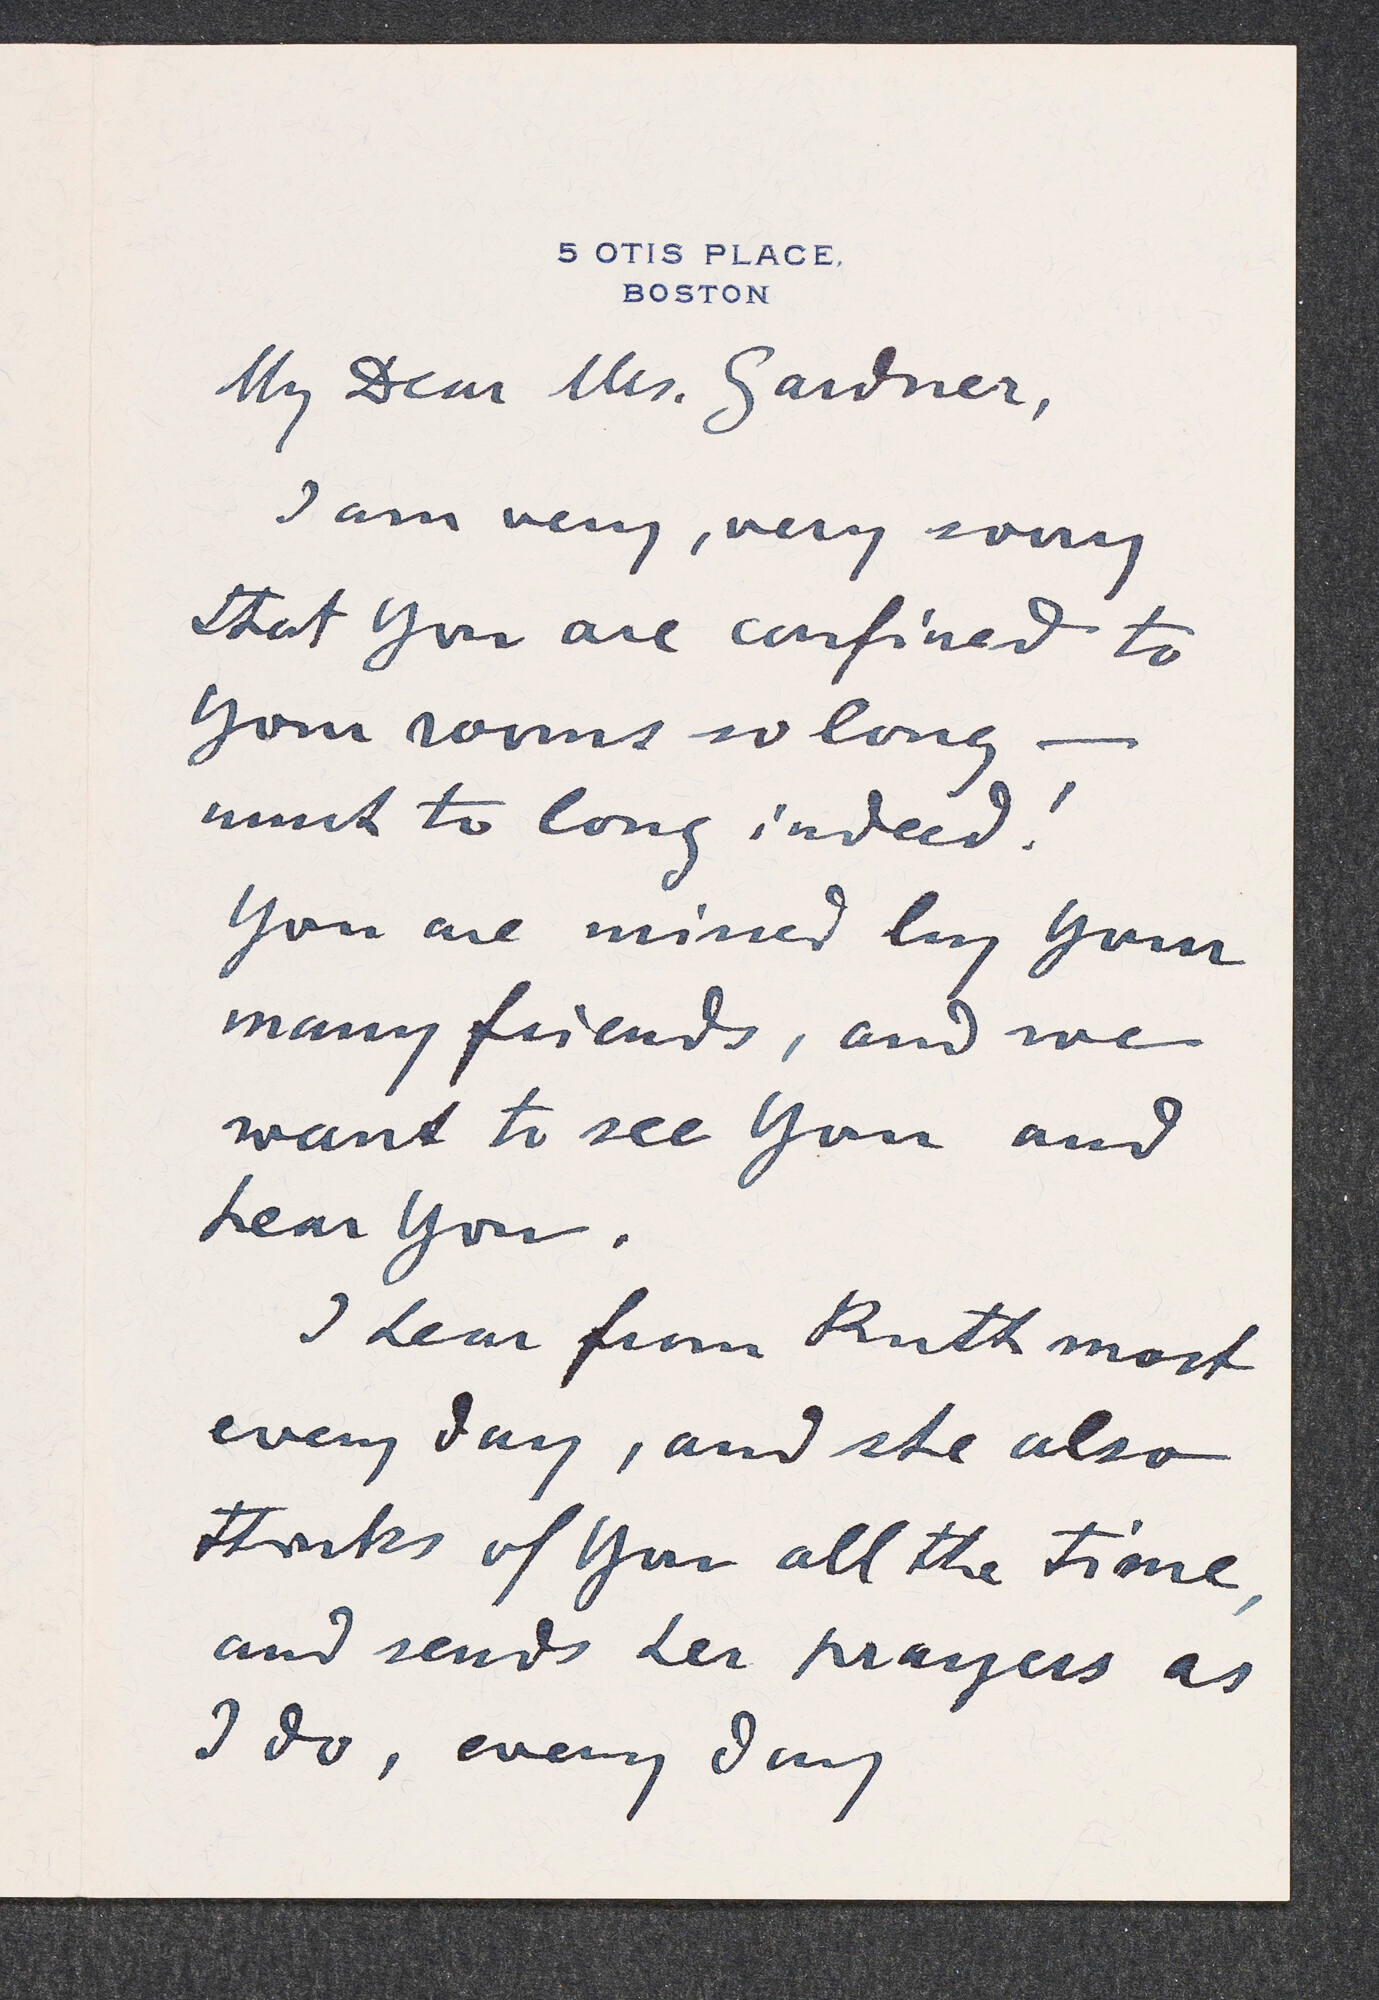 5 OTIS PLACE,
BOSTON
My Dear Mrs. Gardner,
I am very, very sorry
that You are confined to
Your rooms so long —
much to long indeed!
You are missed by Your
many friends, and we
want to see You and
hear You.
I hear from Ruth most
every day, and she also
thinks of You all the time,
and sends her prayers as
I do, every day